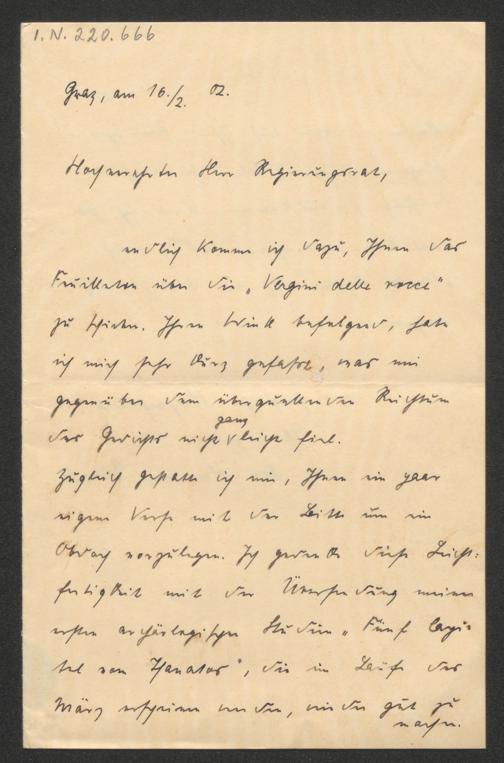 I.N. 220.666
Graz, am 16./2. 02.
Hochverehrter Herr Regierungsrat,
endlich komme ich dazu, Ihnen das
Feuilleton über die „Vergini delle rocce"
zu schicken. Ihrem Wink befolgend, habe
ich mich sehr kurz gefasst, was mir
gegenüber dem überquellenden Reichtum
des Gedichts nicht ganz leicht fiel.
Zugleich gestatte ich mir, Ihnen ein paar
eigene Verse mit der Bitte um ein
Obdach vorzulegen. Ich gedenke diese Leicht-
fertigkeit mit der Übersendung meiner
ersten archäologischen Studien „Fünf Capi-
tel vom Thanatos", die im Laufe des
März erscheinen werden, wieder gut zu
machen.